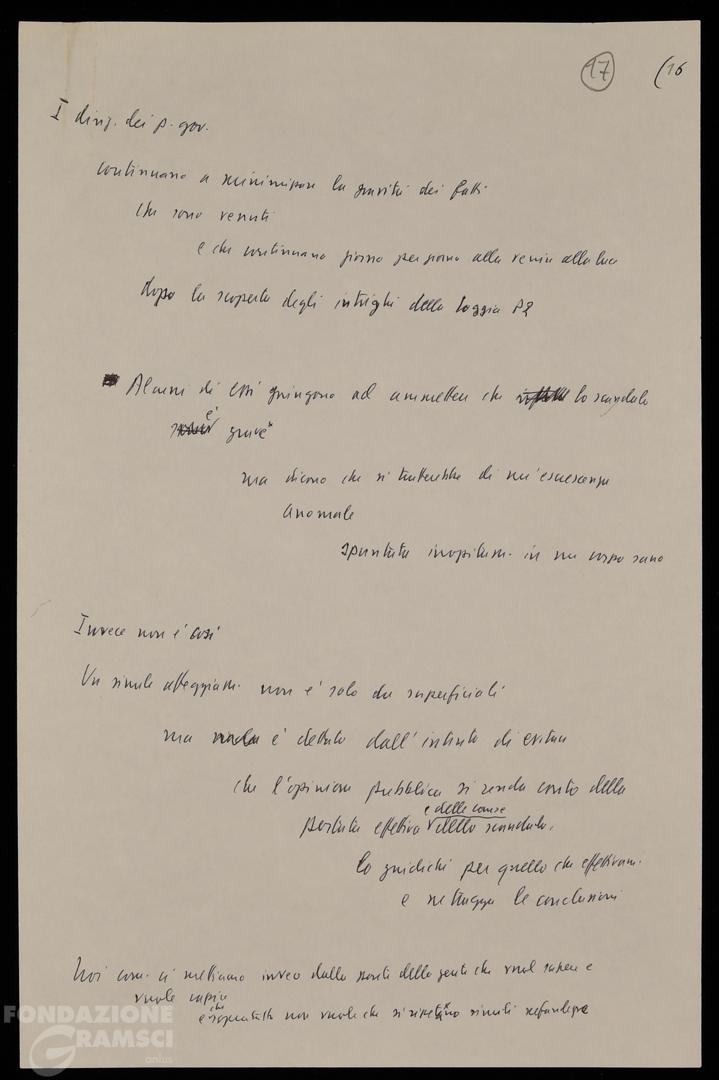 17 (16
I dirig. dei p. gov.
continuano a minimizzare la gravità dei fatti
che sono venuti
e che continuano giorno per giorno alla venire alla luce
dopo la scoperta degli intrighi della Loggia P2
Alcuni di essi giungono ad ammettere che lo scandalo
è grave
ma dicono che si tratterebbe di un'escrescenza
anomala
spuntata inopitam. in un corpo sano
Invece non è così
Un simile atteggiam. non è solo da superficiali
ma è dettato dall'intento di evitare
che l'opinione pubblica si renda conto della
e delle cause
portata effettiva dello scandalo,
lo giudichi per quello che effettivam.
e ne tragga le conclusioni
Noi com. ci mettiamo invece dalla parte della gente che vuol sapere e
vuole capire
che
e soprattutto non vuole che si ripetano simili
FONDAZIONE
GRAMSCI
onlus